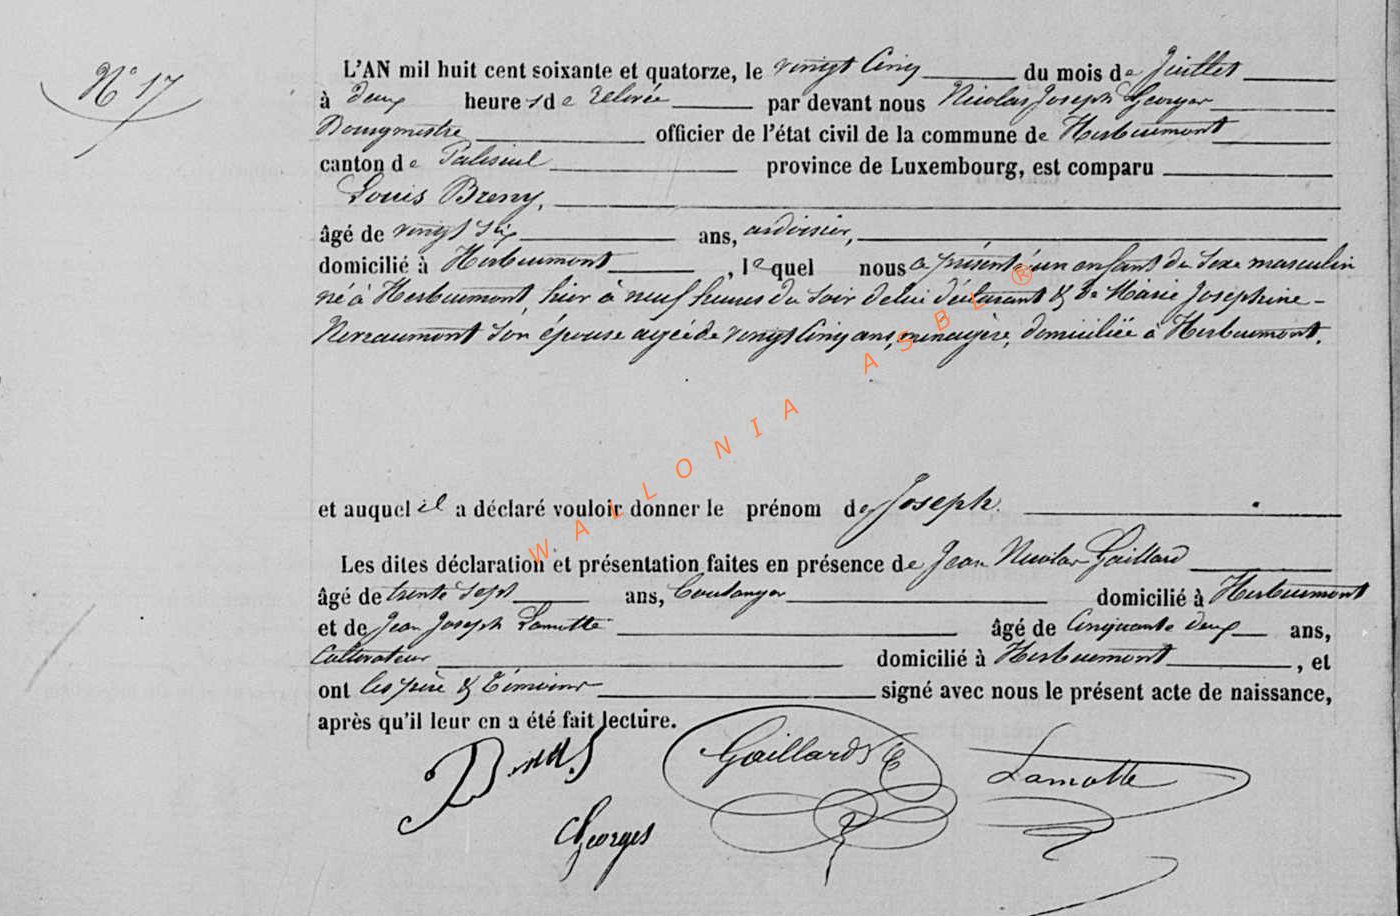 N° 17
L'AN mil huit cent soixante et quatorze, le vingt Cinq du mois de Juillet
à deux heures de relevée par devant nous Nicolas Joseph Georges
Bourgmestre officier de l'état civil de la commune de Herbeumont
canton de Paliseul province de Luxembourg, est comparu
Louis
âgé de vingt six ans, ardoisier,
domicilié à Herbeumont, lequel nous a présenté un enfant du sexe masculin
né à Herbeumont hier à neuf heures du soir de lui déclarant & de Marie Josephine-
son épouse agée de vingt Cinq ans, ménagère, domiciliée à Herbeumont.
et auquel il a déclaré vouloir donner le prénom de Joseph.
Les dites déclaration et présentation faites en présence de Jean Nicolas Gaillard
âgé de trente sept ans, domicilié à Herbeumont
et de Jean Joseph Lamotte âgé de Cinquante deux ans,
Cultivateur domicilié à Herbeumont, et
ont les père & témoins signé avec nous le présent acte de naissance,
après qu'il leur en a été fait lecture.
Gaillard Lamotte
Georges
WALLONIA ASBL ®